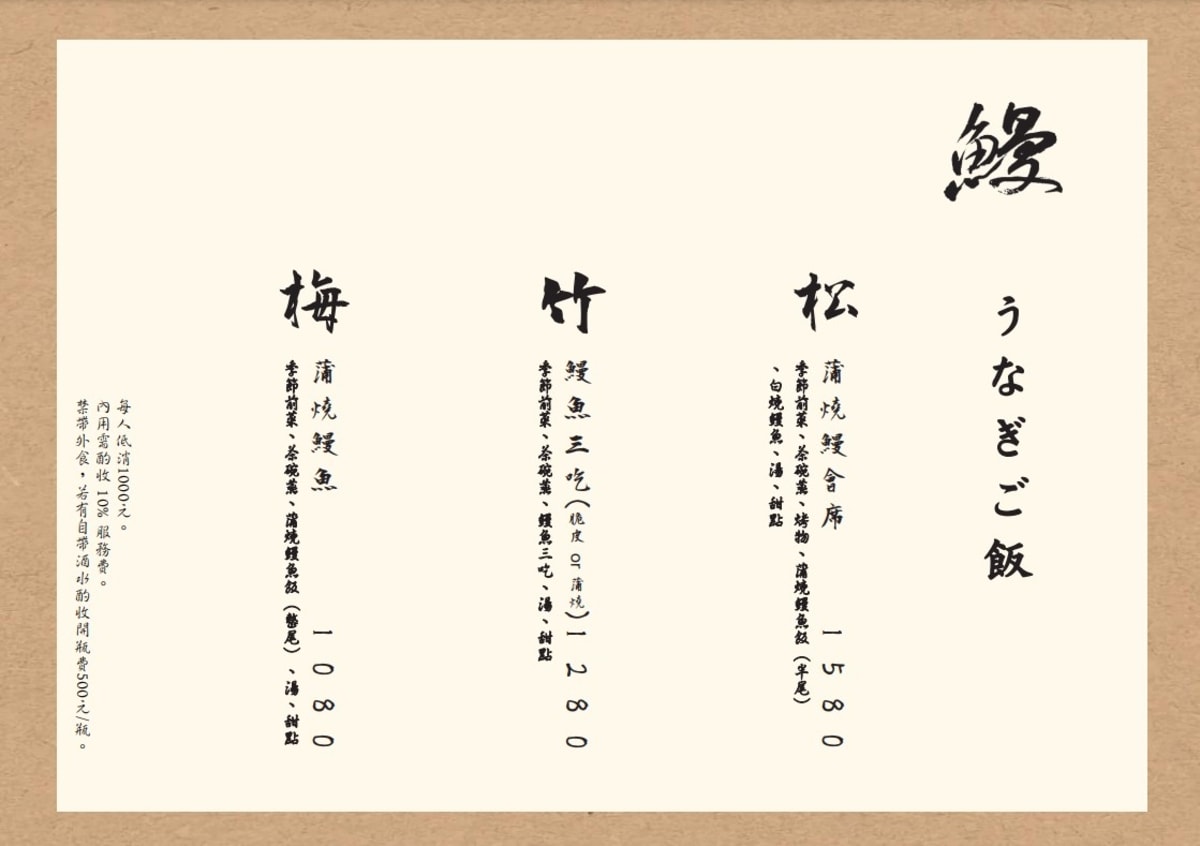 鰻
うなぎご飯
松
蒲燒鰻會席 1580
季節前菜、茶碗蒸、烤物、蒲燒鰻魚飯(半尾)
、白燒鰻魚、湯、甜點
竹
鰻魚三吃(脆皮 or 蒲燒)1280
季節前菜、茶碗蒸、鰻魚三吃、湯、甜點
梅
蒲燒鰻魚 1080
季節前菜、茶碗蒸、蒲燒鰻魚飯(整尾)、湯、甜點
每人低消1000元。
內用需酌收 10% 服務費。
禁帶外食，若有自帶酒水酌收開瓶費500元/瓶。